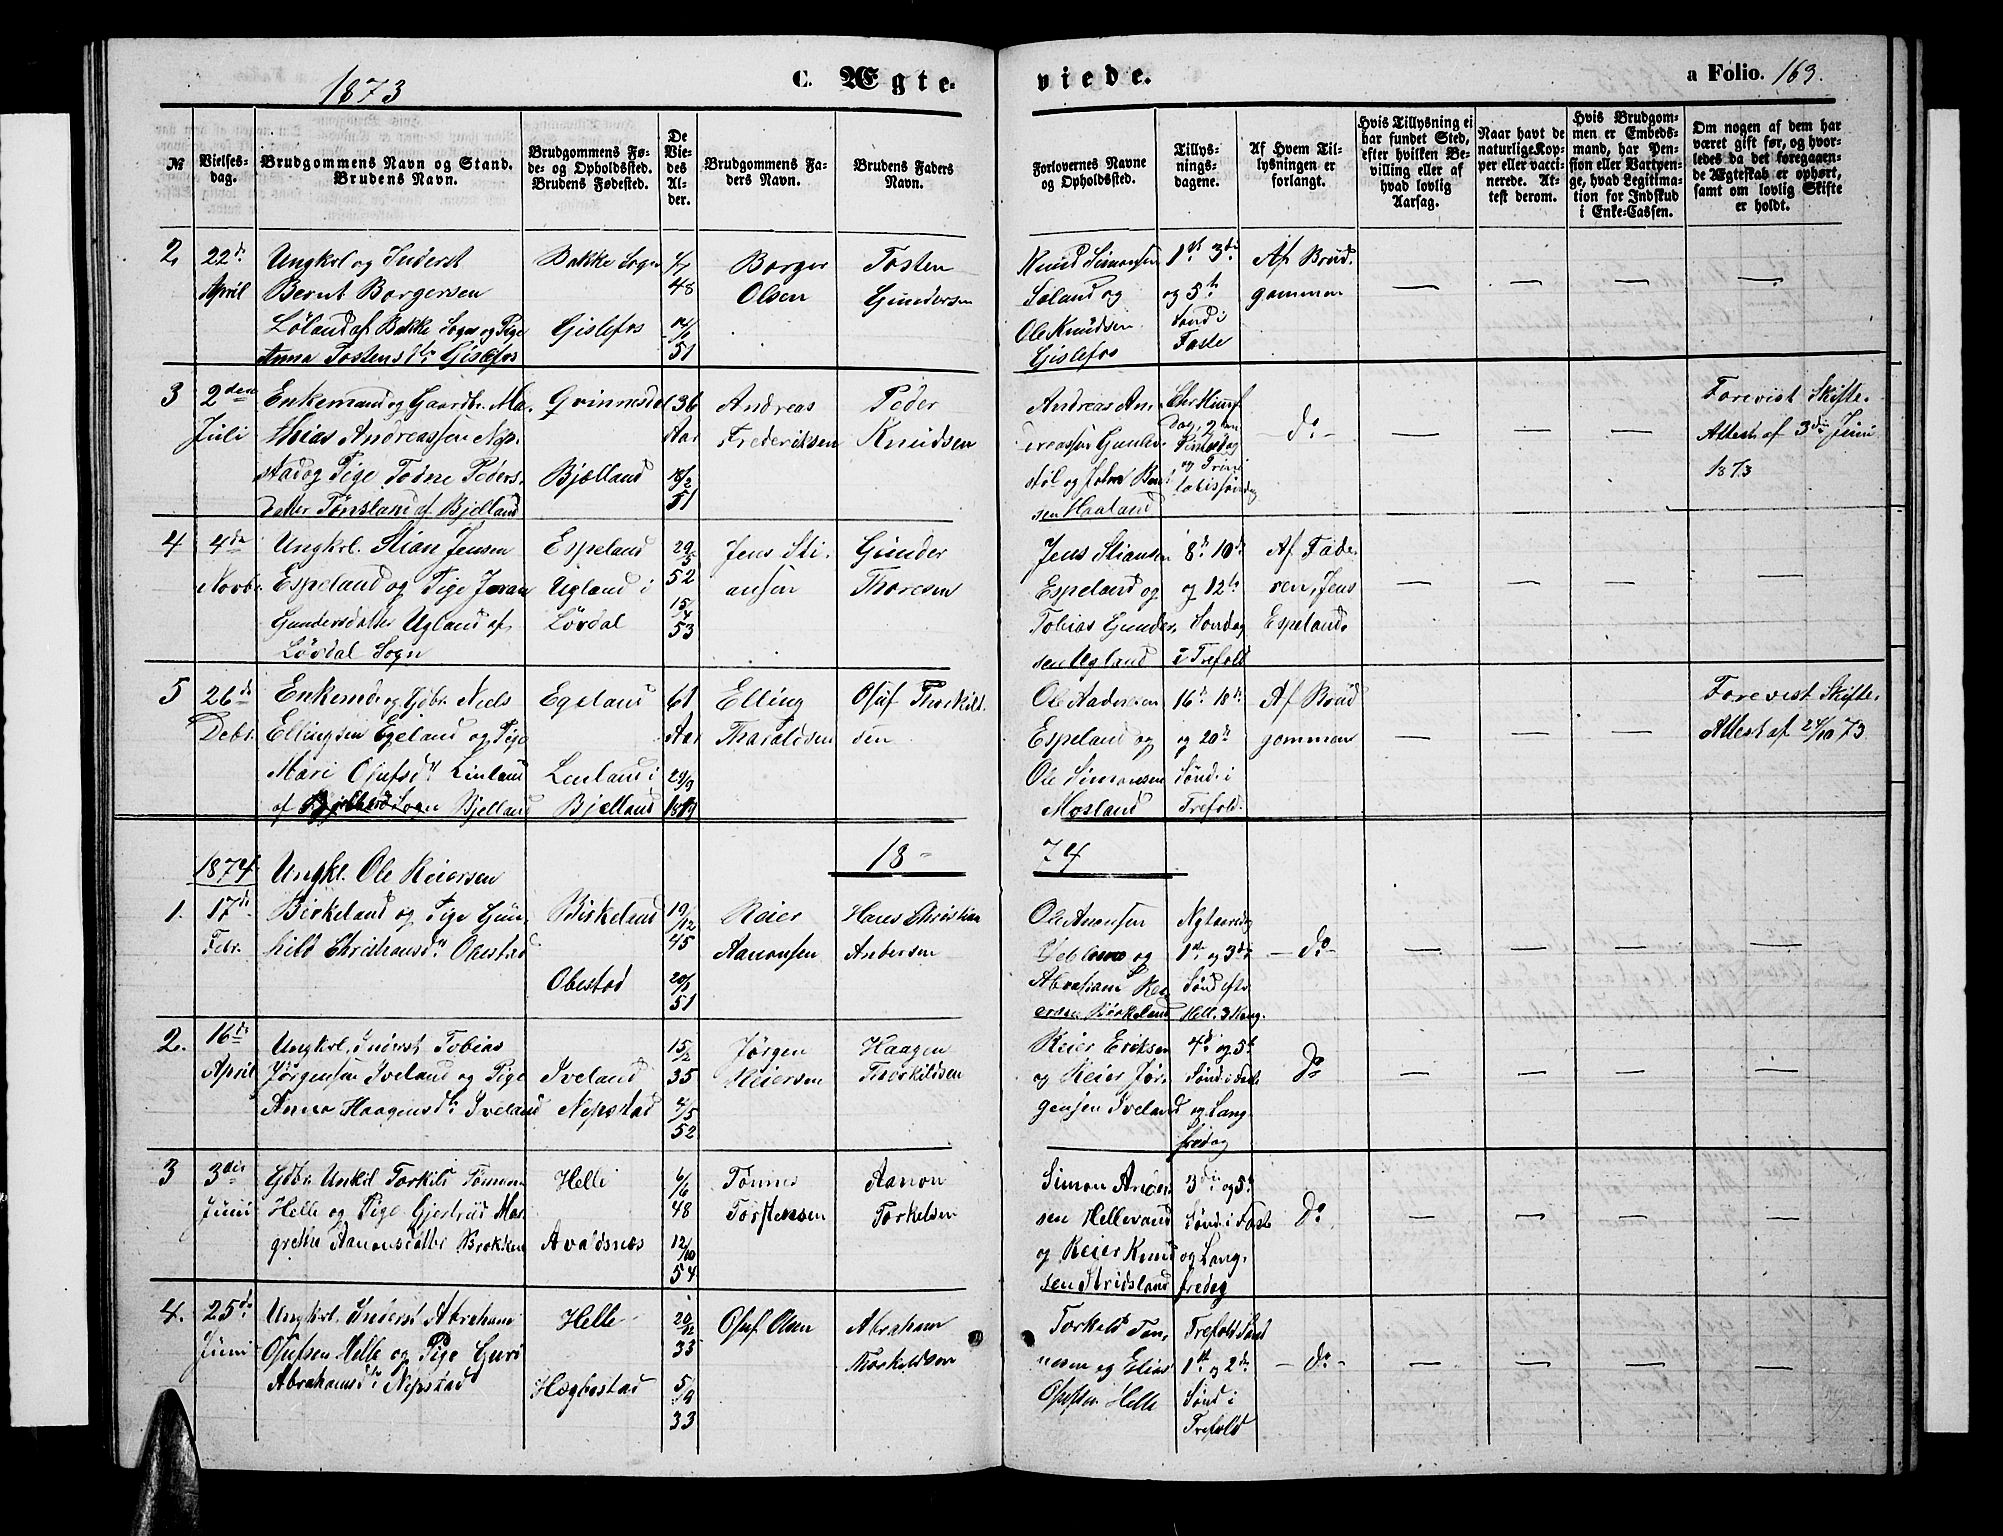 1873
C. Ægte-
viede.
a Folio. 163.
№
Vielses-
dag.
Brudgommens Navn og Stand.
Brudens Navn.
Brudgommens Fø-
de- og Opholdssted.
Brudens Fødested.
De
Vie-
des
Al-
der.
Brudgommens Fa-
ders Navn.
Brudens Faders
Navn.
Forlovernes Navne
og Opholdssted.
Tillys-
nings-
dagene.
Af Hvem Til-
lysningen er
forlangt.
Hvis Tillysning ei
har fundet Sted,
efter hvilken Be-
villing eller af
hvad lovlig
Aarsag.
Naar havt de
naturlige Kop-
per eller vacci-
nerede. At-
test derom.
Hvis Brudgom-
men er Embeds-
mand, har Pen-
sion eller Vartpen-
ge, hvad Legitima-
tion for Indskud
i Enke-Cassen.
Om nogen af dem har
været gift før, og hvor-
ledes da det foregaaen-
de Ægteskab er ophørt,
samt om lovlig Skifte
er holdt.
2,
22de
April
Ungkrl og Inderst
Bernt Borgersen
Løland af Bakke Sogn og Pige
Anna Tostensdtr Gislefos
Bakke Sogn
Gislefos
48
51
Borger
Olsen
Tosten
Gundersen
Knud Simonsen
Søland og
Ole Knudsen
Gislefos
1st 3die
og 5te
Sønd i
Faste
Af Brud-
gommen
3
2den
Juli
Enkemand og Gaardbr. Ma-
thias Andreassen Nep-
stad og Pige Todne Peders-
datter Tønsland af Bjelland
Grinnesdal
Bjælland
36
Aar
18/2
51
Andreas
Frederiksen
Peder
Knudsen
Andreas An-
dreassen
sen Haaland
Chr Himf
Dag, 2den
Pintsedag
og Trini-
tatissøndag
do
Forevist Skifte-
Attest af 3die Juni
1873
4
4de
Novbr.
Ungkrl. Stian Jensen
Espeland og Pige Joran
Gundersdatter Ugland af
Løvdal Sogn
Espeland
Ugland i
Løvdal
29/5
52
15/4
53
Jens Sti-
ansen
Gunder
Thoresen
Jens Stiansen
Espeland og
Tobias Gunder-
sen Ugland
8de 10de
og 12te
Søndag
i Trefold
Af Fade-
ren, Jens
Espeland.
5
26de
Debr.
Enkemd og Gbr. Niels
Ellingsen Egeland og Pige
Mari Olufsdtr Linland
af Bjelland
Egeland
Linland i
Bjelland
61
Aar
29/9
1819
Elling
Tharaldsen
Oluf Thorkild-
sen
Ole Andersen
Espeland og
Ole Simonsen
Mosland
16de 18de
og 20de
Sønd. i
Trefold.
Af Brud
gommen
Forevist Skifte-
Attest af 24/10 73
18-
74
1874
1.
17de
Febr.
Ungkl. Ole Reiersen
Birkeland og Pige Gun-
hild Christiansdtr Obestad
Birkeland
Obestad
19/12
45
51
Reier
Aanonsen
Hans Christian
Andersen
Ole Aanonsen
og
Abraham Rei-
ersen Birkeland
Nytaarsdag
1ste og 3die
Sønd efter
Hell. 3 Kong.
do
2.
16de
April
Ungkrl. Inderst Tobias
Jørgensen Iveland og Pige
Anna Haagensdtr Iveland
Iveland
Nepstad
15/2
35
4/5
52
Jørgen
Reiersen
Haagen
Thorkildsen
Reier Eriksen
og Reier Jør-
gensen Iveland
4de og 5te
Sønd. i Faste
og Lang-
fredag
do
3
3die
Juni
Gdbr. Unkrl Torkild Tønnesen
Helle og Pige Gjertrud Mar-
grethe Aanonsdatter Brokken
Helle
Avaldsnes
6/6
48
12/10
54
Tønnes
Torstensen
Aanon
Torkelsen
Simon Ander-
sen Hellevand
og Reier Knud-
sen Stridsland
3die og 5te
Sønd. i Faste
og Lang-
fredag
do
4.
25de
Juni
Ungkrl. Inderst Abraham
Olufsen Helle og Pige Guri
Abrahamsdtr Nepstad
Helle
Hægbostad
33
5/9
33
Oluf Olsen
Abraham
Thorkildsen
Torkild Tøn-
nesen og Elias
Olufsen Helle
Trefold Sønd
1ste og 2den
Sønd i
Trefold
do